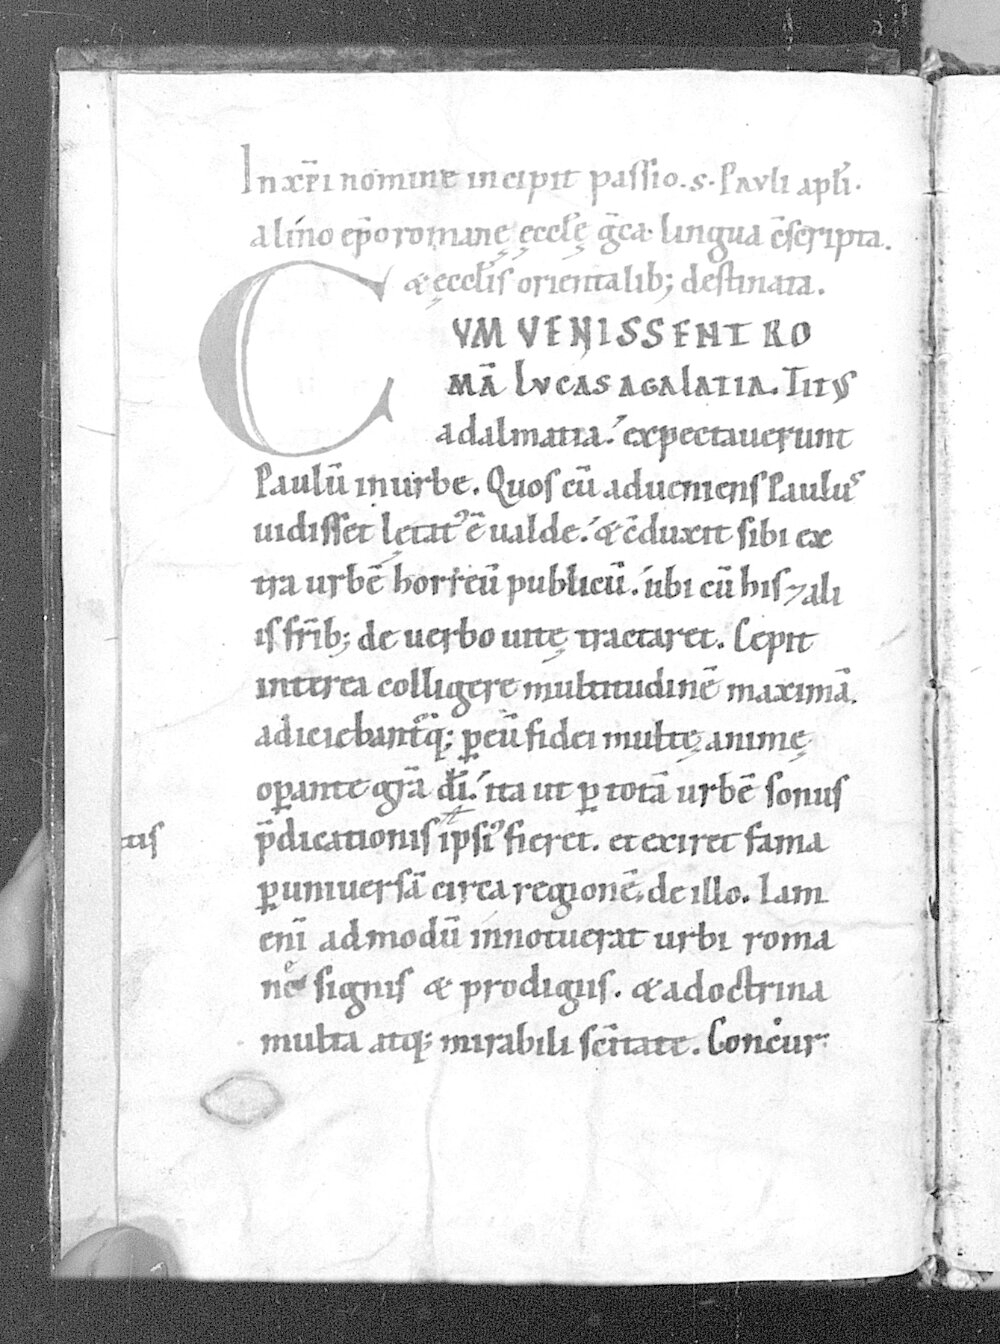 In xp̄i nomine incipit passio. S. Pauli apl̄i.
a lino ep̄o romanę ęccl̄ę gr̄ca lingua c̄scripta.
& ęccl̄is orientalib; destinata.
CVM VENISSENT RO
MĀ LVCAS AGALATIA. TITVS
adalmatia. expectauerunt
Paulū in urbe. Quos cū adueniens Paulus
uidisset lętatꝰ ē ualde. & c̄duxit sibi ex
tra urbē horreū publicū. ubi cū his ⁊ ali
is fr̄ib; de uerbo uitę tractaret. Cepit
interea colligere multitudinē maximā.
adiciebantꝰq; ꝑ eū fidei multę animę
oꝑante gr̄a dī. ita ut ꝑ totā urbē sonus
tis
p̄dicationis ipsiꝰ fieret. et exiret fama
ꝑ uniuersā circa regionē de illo. Iam
enī admodū innotuerat urbi roma
ne signis & prodigiis. & a doctrina
multa atq; mirabili sc̄itate. Concur